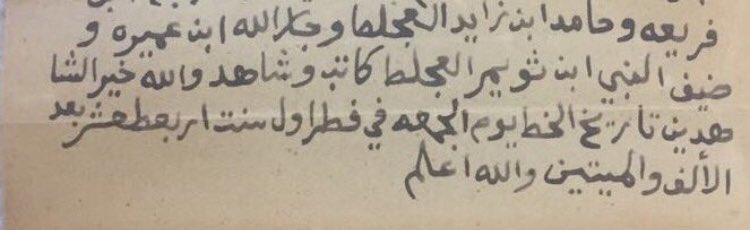 فريعه وحامد ابن زايد العجلط وجار الله ابن عميره و
ضيف النبي ابن ثويمر العجلط كاتب وشاهد والله خير الشا
هدين تاريخ الخط يوم الجمعه في فطر اول سنت اربعطعشر بعد
الألف والميتين والله اعلم